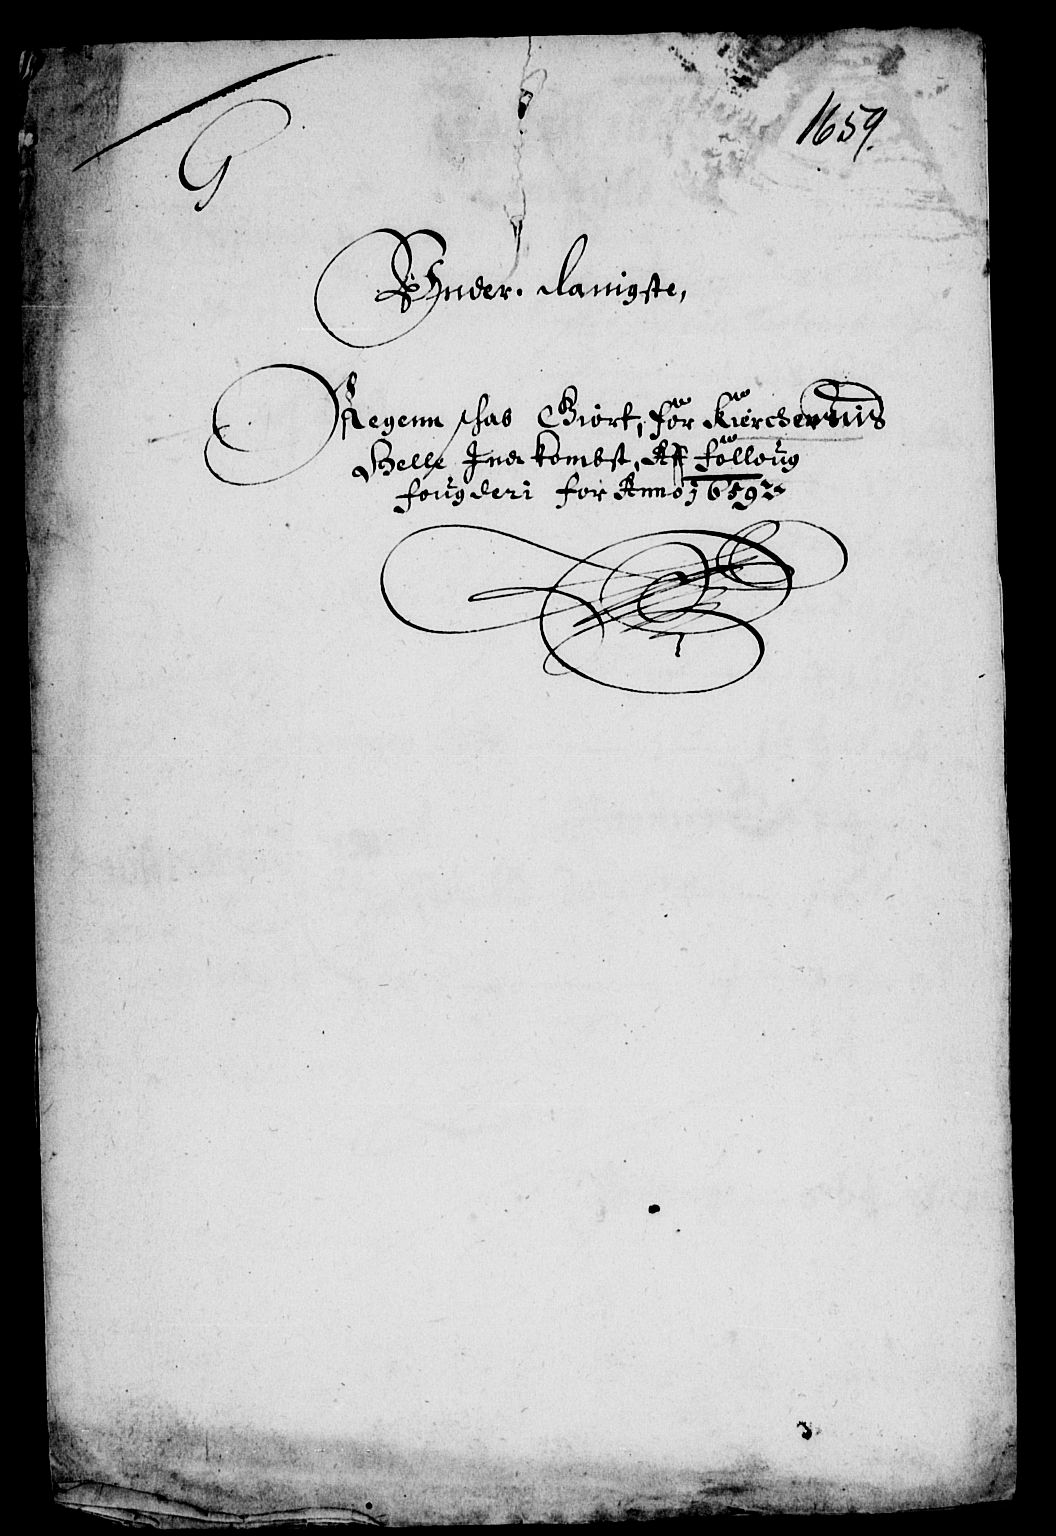 1659.
G
Under. danigste,
Regenn schab Giört, för Kierchernis
Helle Ind kombst, Aff fölloug
fougderi for Anno 1659